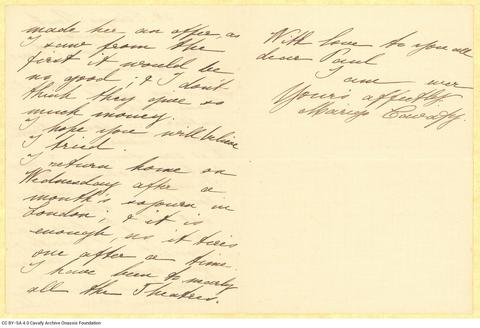 made her an offer, as
I saw from the
first it would be
no good; & I don't
think they give so
much money.
I hope you will believe
I tried.
I return home on
Wednesday after a
month's sojourn in
London; & it is
enough, as it tires
one after a time.
I have been to nearly
all the Theatres.
With love to you all
dear Paul
I am ever
Yours affectly.
Marigo Cavafy
CC BY-SA 4.0 Cavafy Archive Onassis Foundation